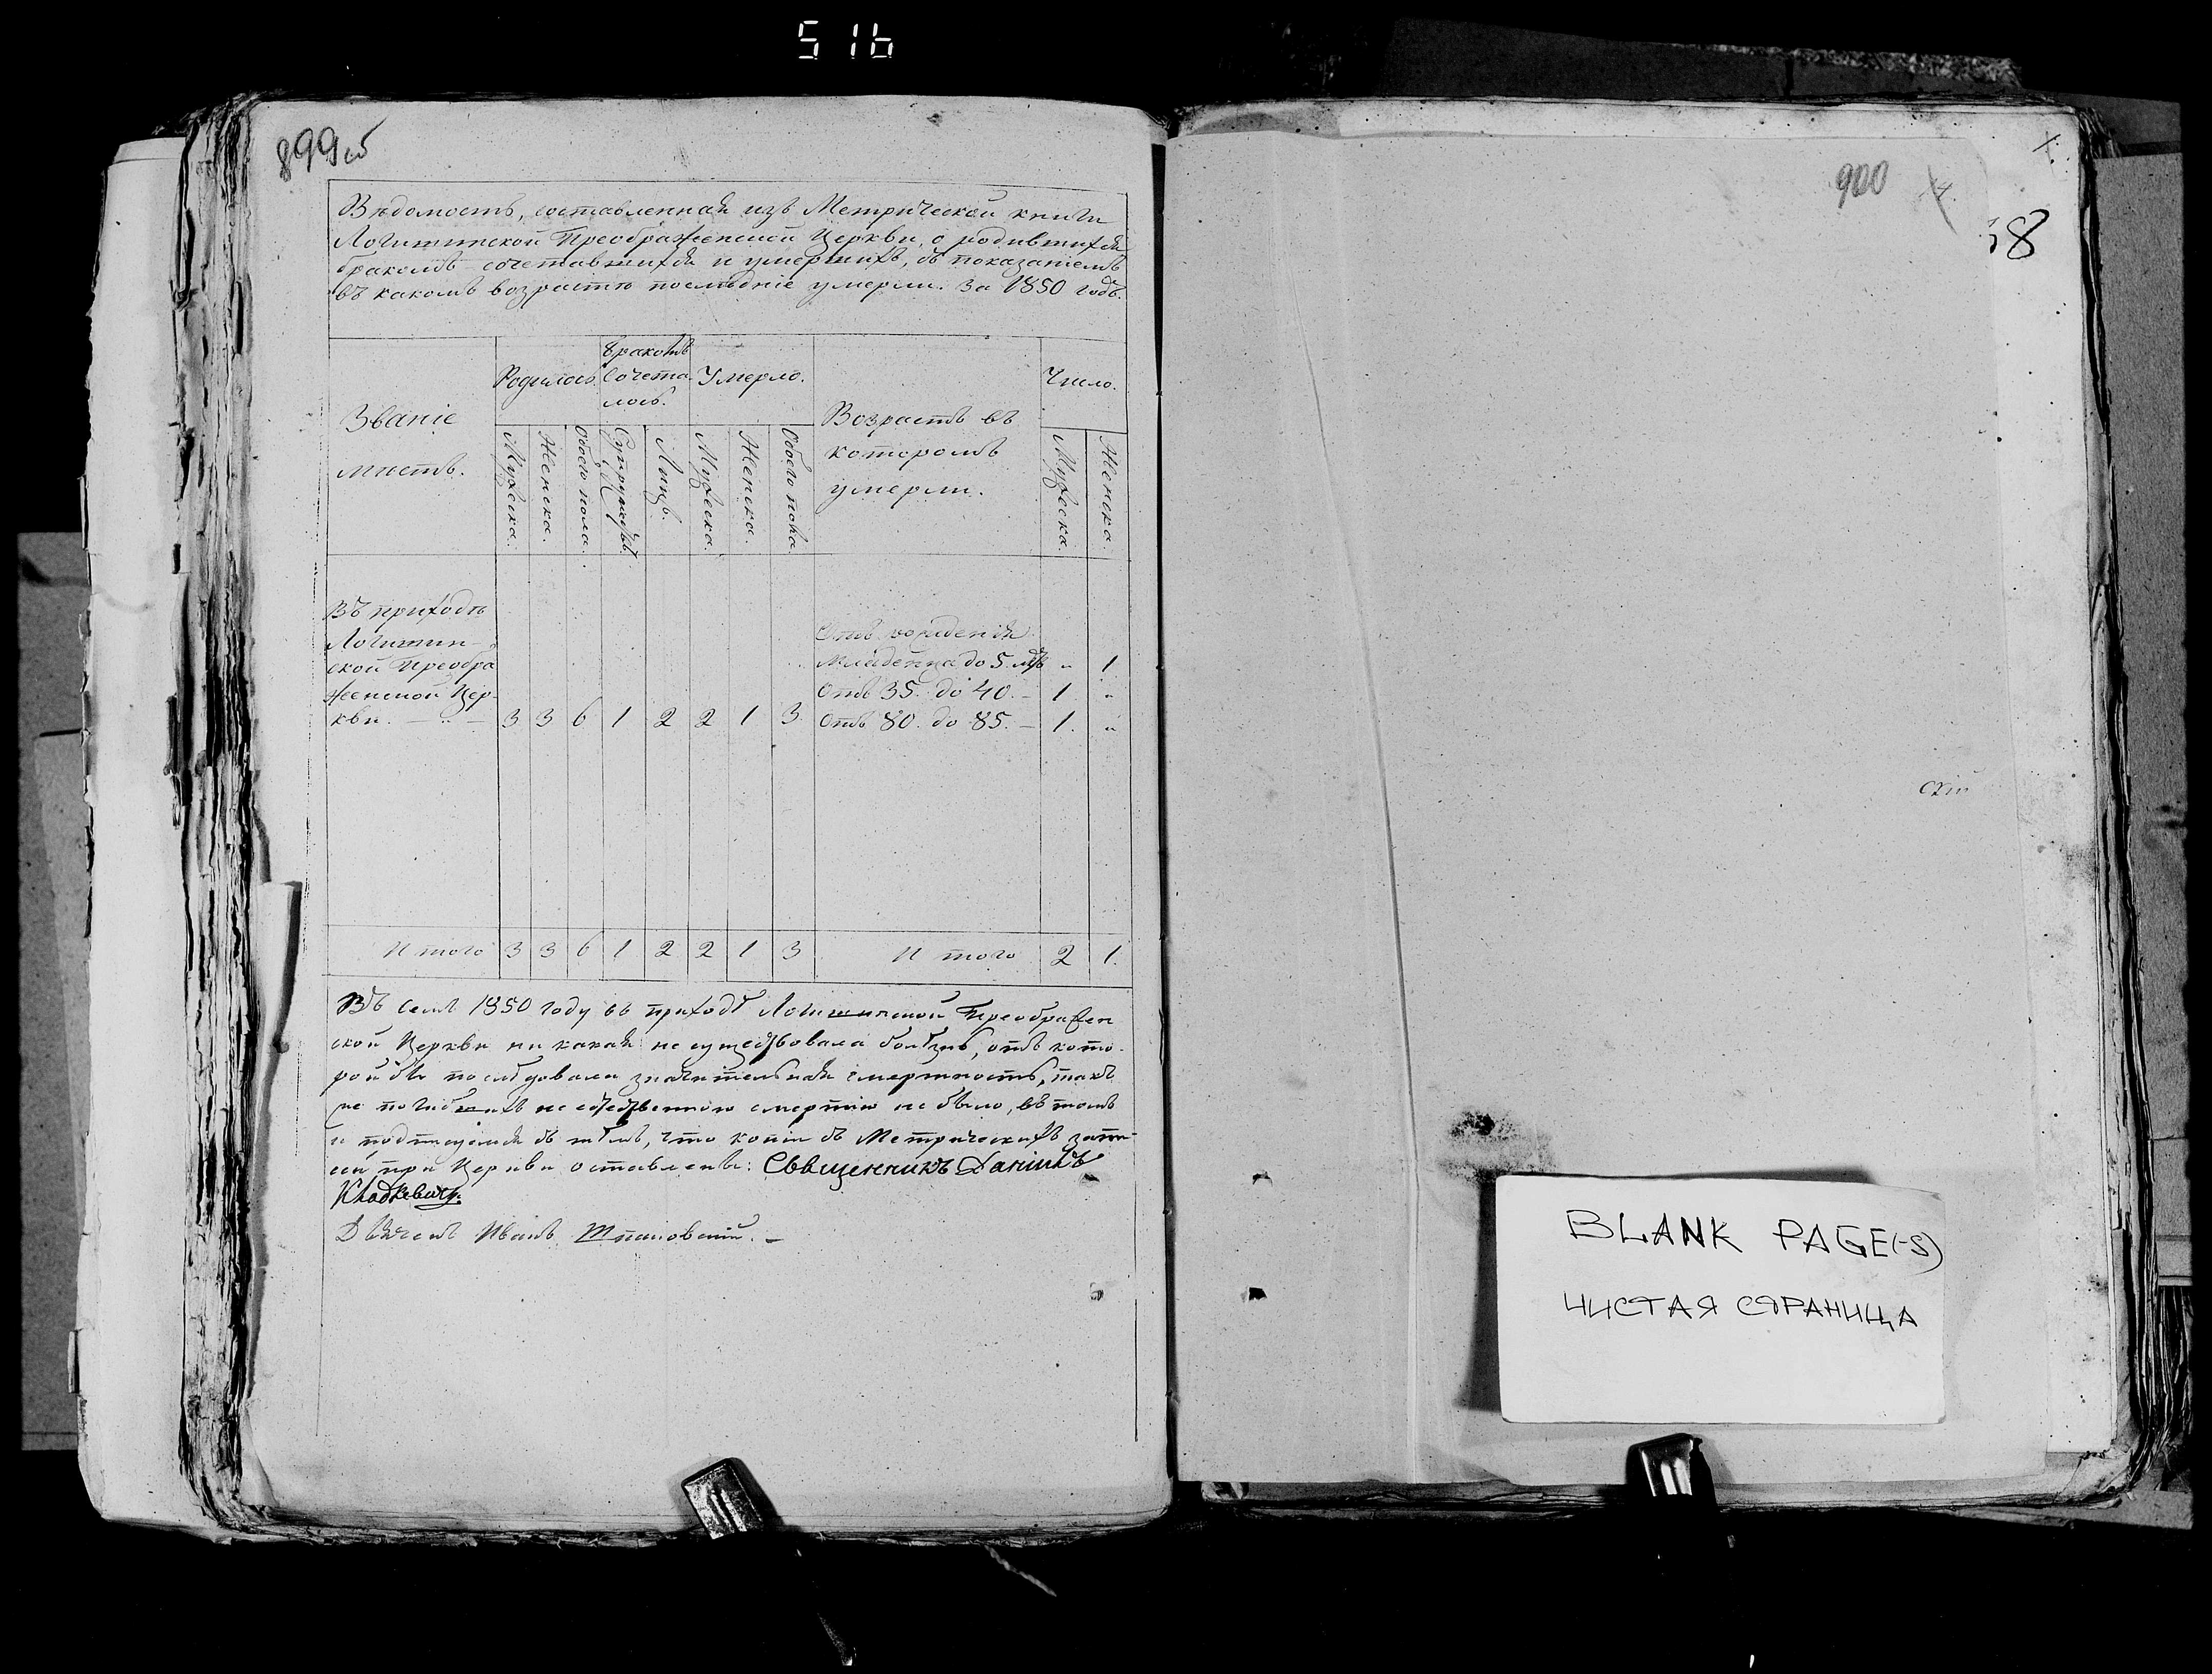 516
899об
Вѣдомость, составленная изъ Метрической книги
Логишинской Преображенской Церкви, о родившихся
бракомъ сочетавшихся и умершихъ, съ показаніемъ
въ какомъ возрастѣ послѣдніе умерли. За 1850 годъ.
Званіе мѣстъ.
Родилось.
Бракомъ Сочеталось.
Умерло.
Возрастъ въ
которомъ
умерли.
Число.
Мужеска. Женска. Обоего пола. Супружествъ. Лицъ. Мужеска. Женска. Обоего пола. Мужеска. Женска.
Въ приходѣ
Логишин-
ской Преобра
женской Цер-
кви. — „ — 3 3 6 1 2 2 1 3
Отъ рожденія
Младенца до 5 лѣтъ „ 1
Отъ 35. до 40. — 1 „
Отъ 80. до 85. — 1. „
Итого 3 3 6 1 2 2 1 3 Итого 2 1.
Въ семъ 1850 году въ приходѣ Логишинской Преображен
ской Церкви ни какая не существовала болѣзнь, отъ кото-
рой бы послѣдовала значительная смертность, такъ
же погибшихъ несобственною смертію не было, въ томъ
и подписуемся съ тѣмъ, что копіи съ Метрическихъ запи-
сей при Церкви оставлены: Священникъ Даніилъ
Дьячекъ Иванъ
900
4.
38
скій
BLANK PAGE(-S)
ЧИСТАЯ СТРАНИЦА